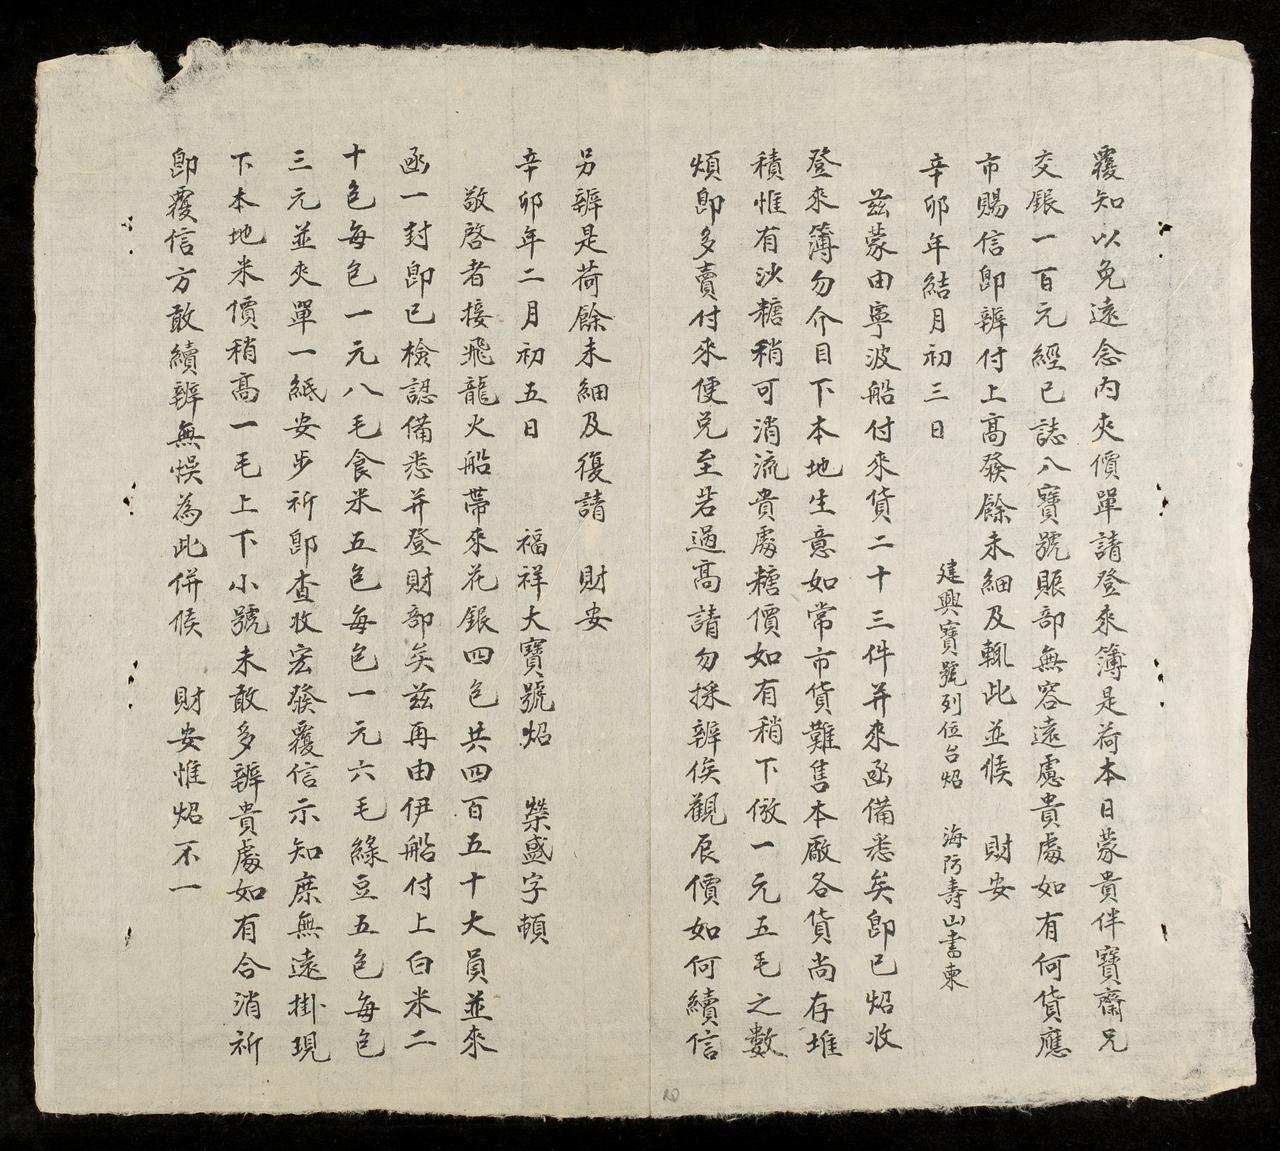 覆知以免遠念內夾價單請登來簿是荷本日蒙貴伴寶齋兄
交銀一百元經已誌入寶號賬部無容遠慮貴處如有何貨應
市賜信即辦付上高發餘未細及輒此並候　財安
辛卯年結月初三日　建興寶號列位台炤　海防壽山書柬
茲蒙由寧波船付來貨二十三件并來函備悉矣即已炤收
登來簿勿介目下本地生意如常市貨難售本廠各貨尚存堆
積惟有沙糖稍可消流貴處糖價如有稍下倣一元五毛之數
煩即多賣付來便兌至若過高請勿採辦俟觀辰價如何續信
另辦是荷餘未細及復請　財安
辛卯年二月初五日　福祥大寶號炤　榮盛字頓
敬啓者接飛龍火船帶來花銀四包共四百五十大員並來
函一封即已檢認備悉并登財部矣茲再由伊船付上白米二
十包每包一元八毛食米五包每包一元六毛綠豆五包每包
三元並夾單一紙安步祈即查收宏發覆信示知庶無遠掛現
下本地米價稍高一毛上下小號未敢多辦貴處如有合消祈
即覆信方敢續辦無悞為此併候　財安惟炤不一
20